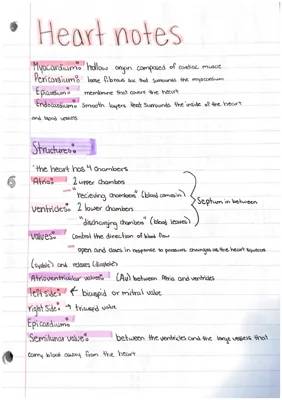 Heart notes
Myocardium: hollow organ composed of cardiac muscle
Pericardium: loose fibrous sac that surrounds the myocardium
Epicardium: membrane that covers the heart
Endocardium: smooth layers that surrounds the inside of the heart
and blood vessels
Structure:
the heart has 4 chambers
Atria: 2 upper chambers
"recieving chambers" (blood comes in)
Septum in between
ventricles: 2 lower chambers
"discharging chambers" (blood leaves)
valves: control the direction of blood flow
open and closes in response to pressure changes as the heart squeezes
(systolic) and relaxes (diastolic)
Atrioventricular valves: (AV) between Atria and ventricles
left side: ← bicuspid or mitral valve
right side: → tricuspid valve
Epicardium:
Semilunar valve: between the ventricles and the large vessels that
carry blood away from the heart